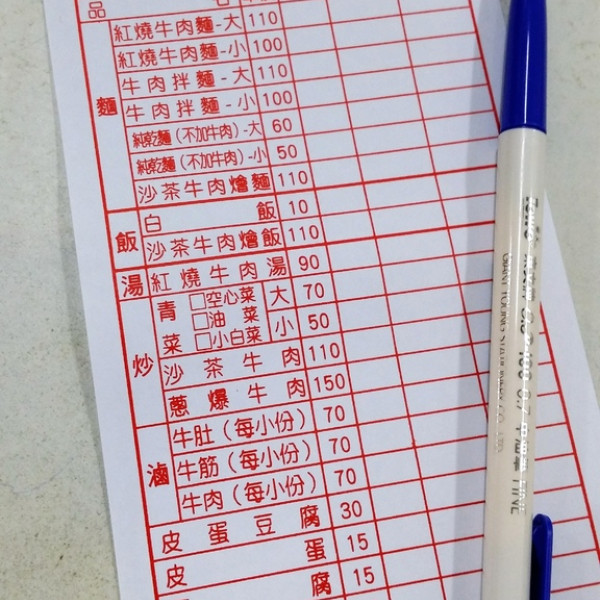 品 名
麵
紅燒牛肉麵-大 110
紅燒牛肉麵-小 100
牛肉拌麵-大 110
牛肉拌麵-小 100
純乾麵(不加牛肉)-大 60
純乾麵(不加牛肉)-小 50
沙茶牛肉燴麵 110
飯
白飯 10
沙茶牛肉燴飯 110
湯
紅燒牛肉湯 90
炒
青菜
□空心菜
□油菜
□小白菜
大 70
小 50
沙茶牛肉 110
蔥爆牛肉 150
滷
牛肚(每小份) 70
牛筋(每小份) 70
牛肉(每小份) 70
皮蛋豆腐 30
皮蛋 15
腐 15
FINE